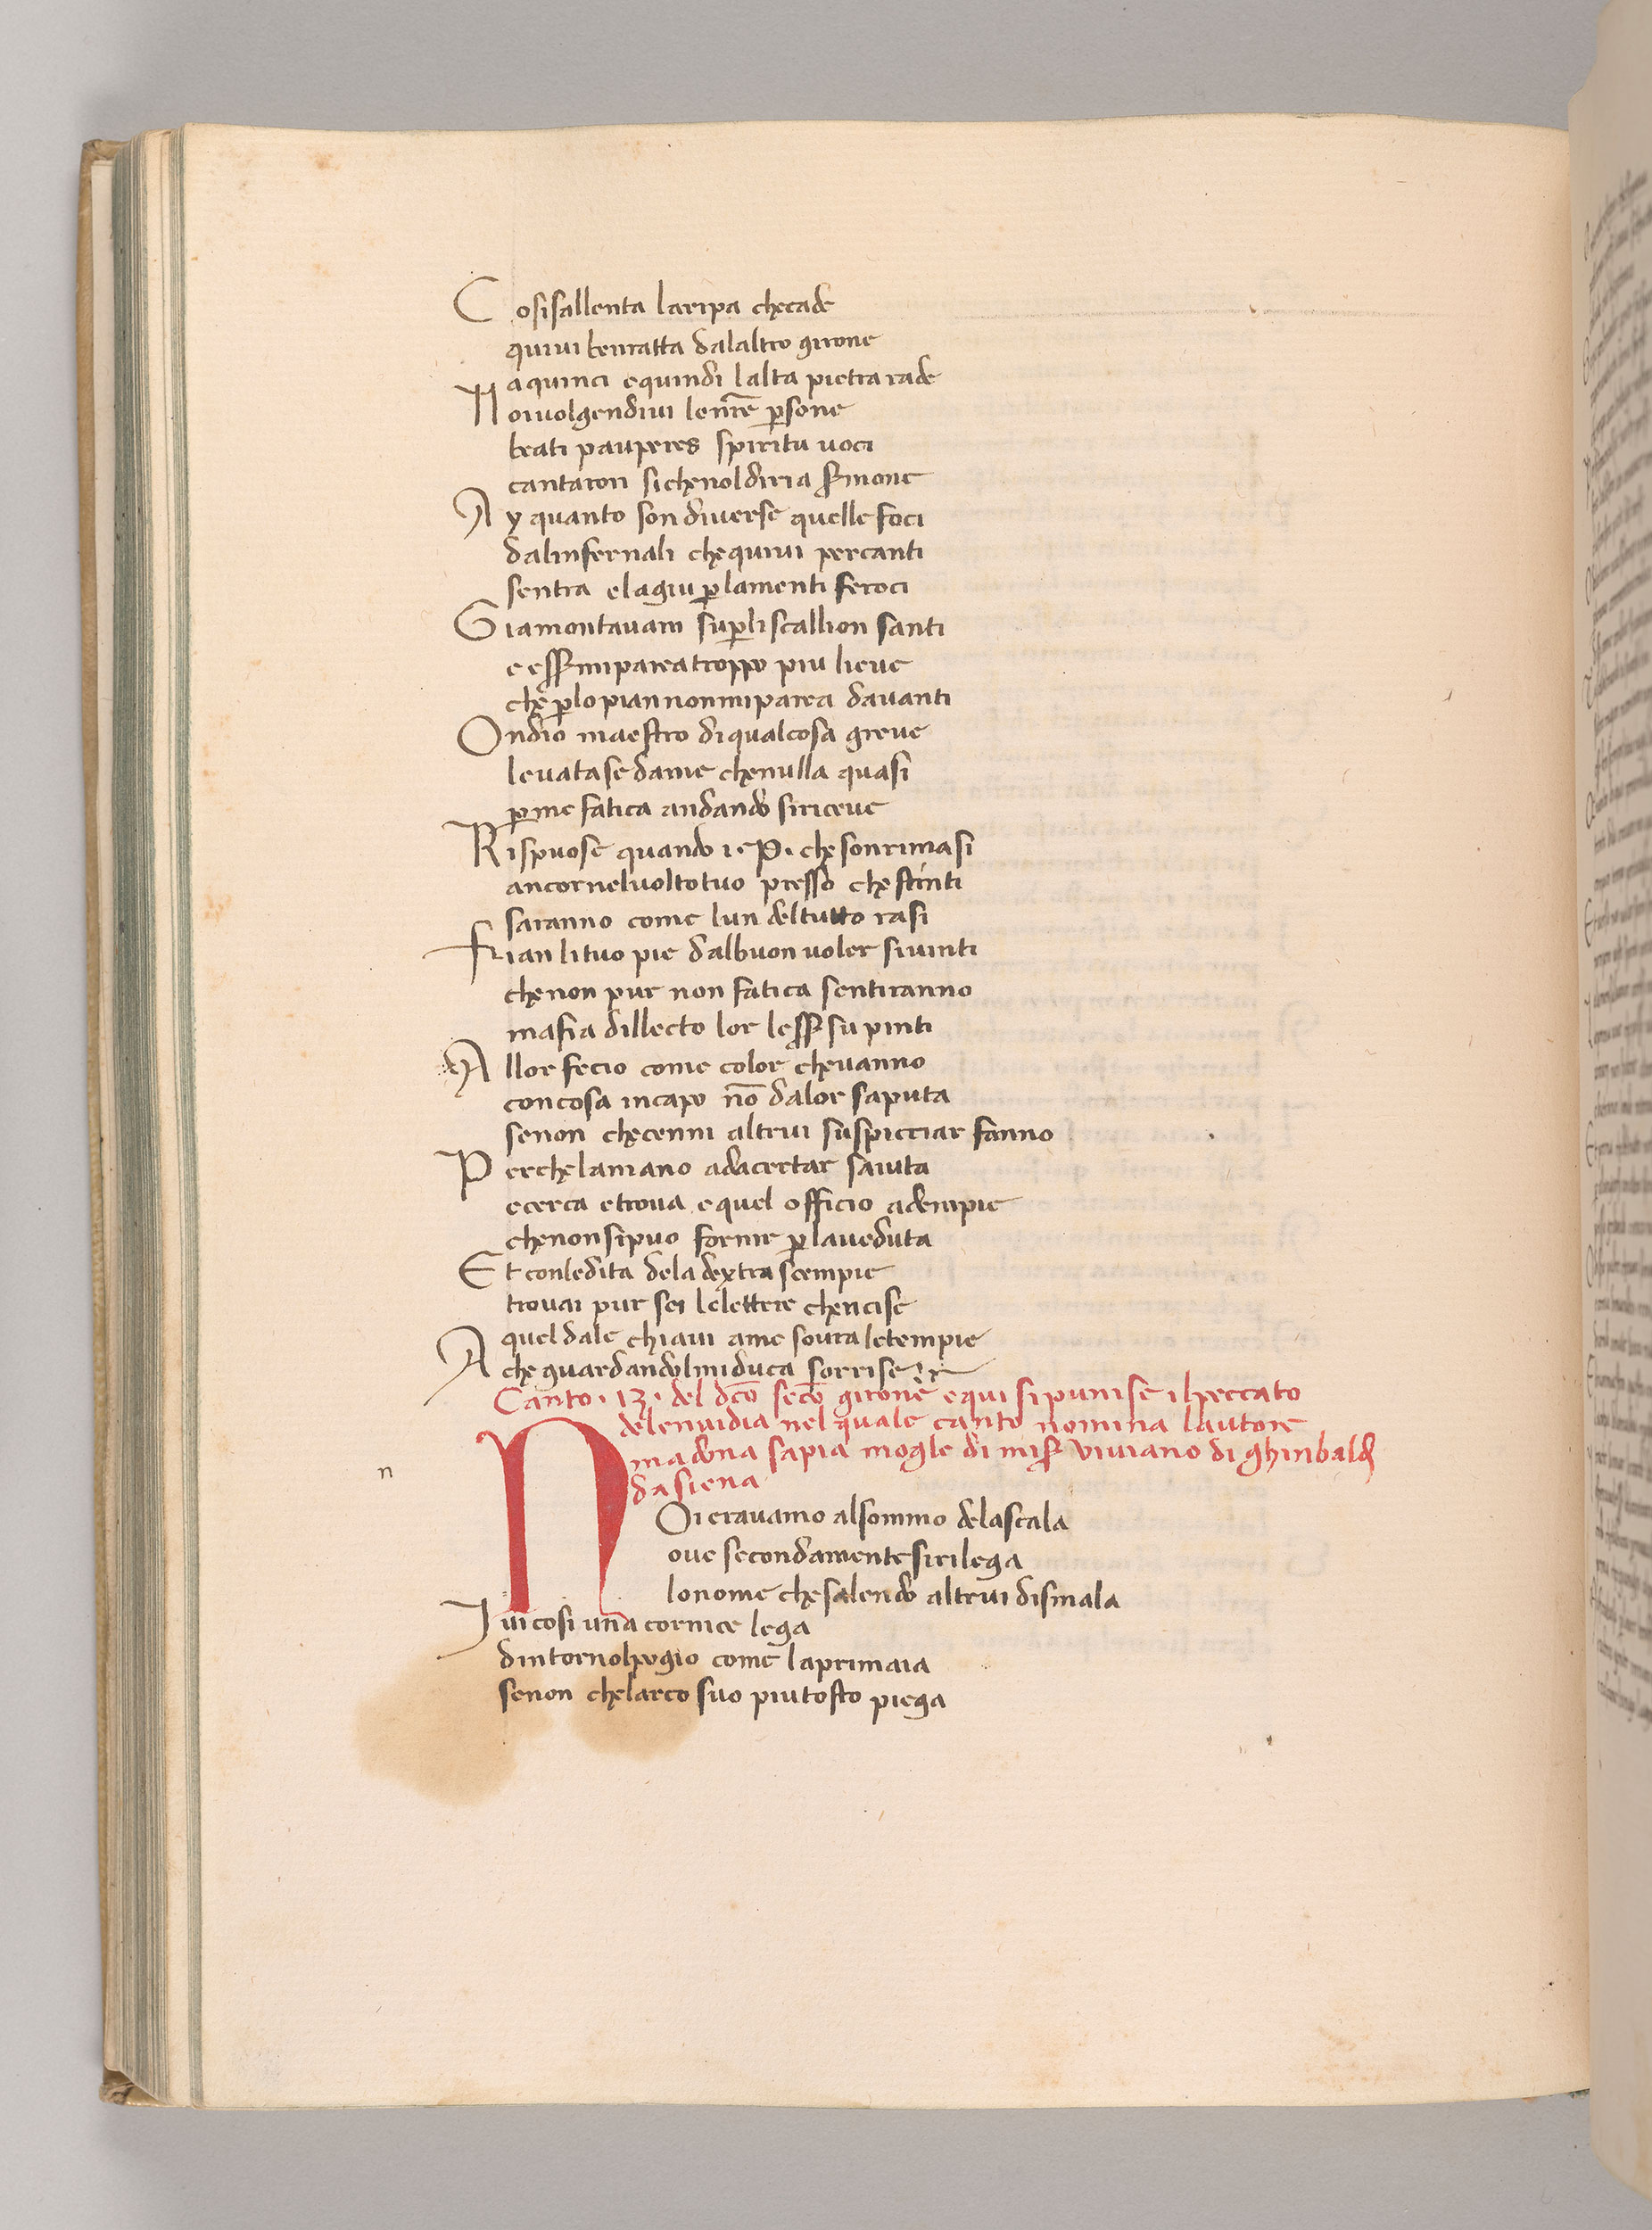 Cosisallenta laripa checade
quiui benratta dalaltro girone
aquinci equindi lalta pietra rade
Noiuolgendiui lenr̄e ꝑsone
beati pauperes spiritu uoci
cantaron sichenoldiria smone
Ay quanto son diuerse quelle foci
dalinfernali chequiui percanti
sentra elagiu ꝑlamenti feroci
Giamontauam suꝑli scallion santi
e essmi parea troppo piu lieue
che ꝑlo pian nonmi parea dauanti
Ondio maestro diqualcosa greue
leuatase dame chenulla quasi
ꝑme fatica andando siriceue
Rispuose quando i·P· che sonrimasi
ancornel uoltotuo presso che stinti
saranno come lun deltutto rasi
Fian lituo pie dalbuon uoler siuinti
chenon pur non fatica sentiranno
mafia dillecto lor less su pinti
Allor fecio come color cheuanno
concosa incapo nō dalor saputa
senon checenni altrui suspicciar fanno
Perchelamano adacertar saiuta
ecerca etroua equel officio adempie
chenonsipuo fornir ꝑlaueduta
Et conledita dela dextra scempie
trouai pur sei lelettere chencise
quel dale chiaui ame soura letempie
Ache guardandolmiduca sorrise
Canto · 13 · del dc̄o sec̄o girone equi sipunise ilpeccato
delenuidia nel quale canto nomina lautore
madona sapia mogle di mis̄ viuiano di ghinbald
dasiena
n
NOi erauamo alsommo delascala
oue secondamente sirilega
lonome chesalendo altrui dismala
Iui cosi una cornice lega
dintornolpogio come laprimaia
senon chelarco suo piutosto piega